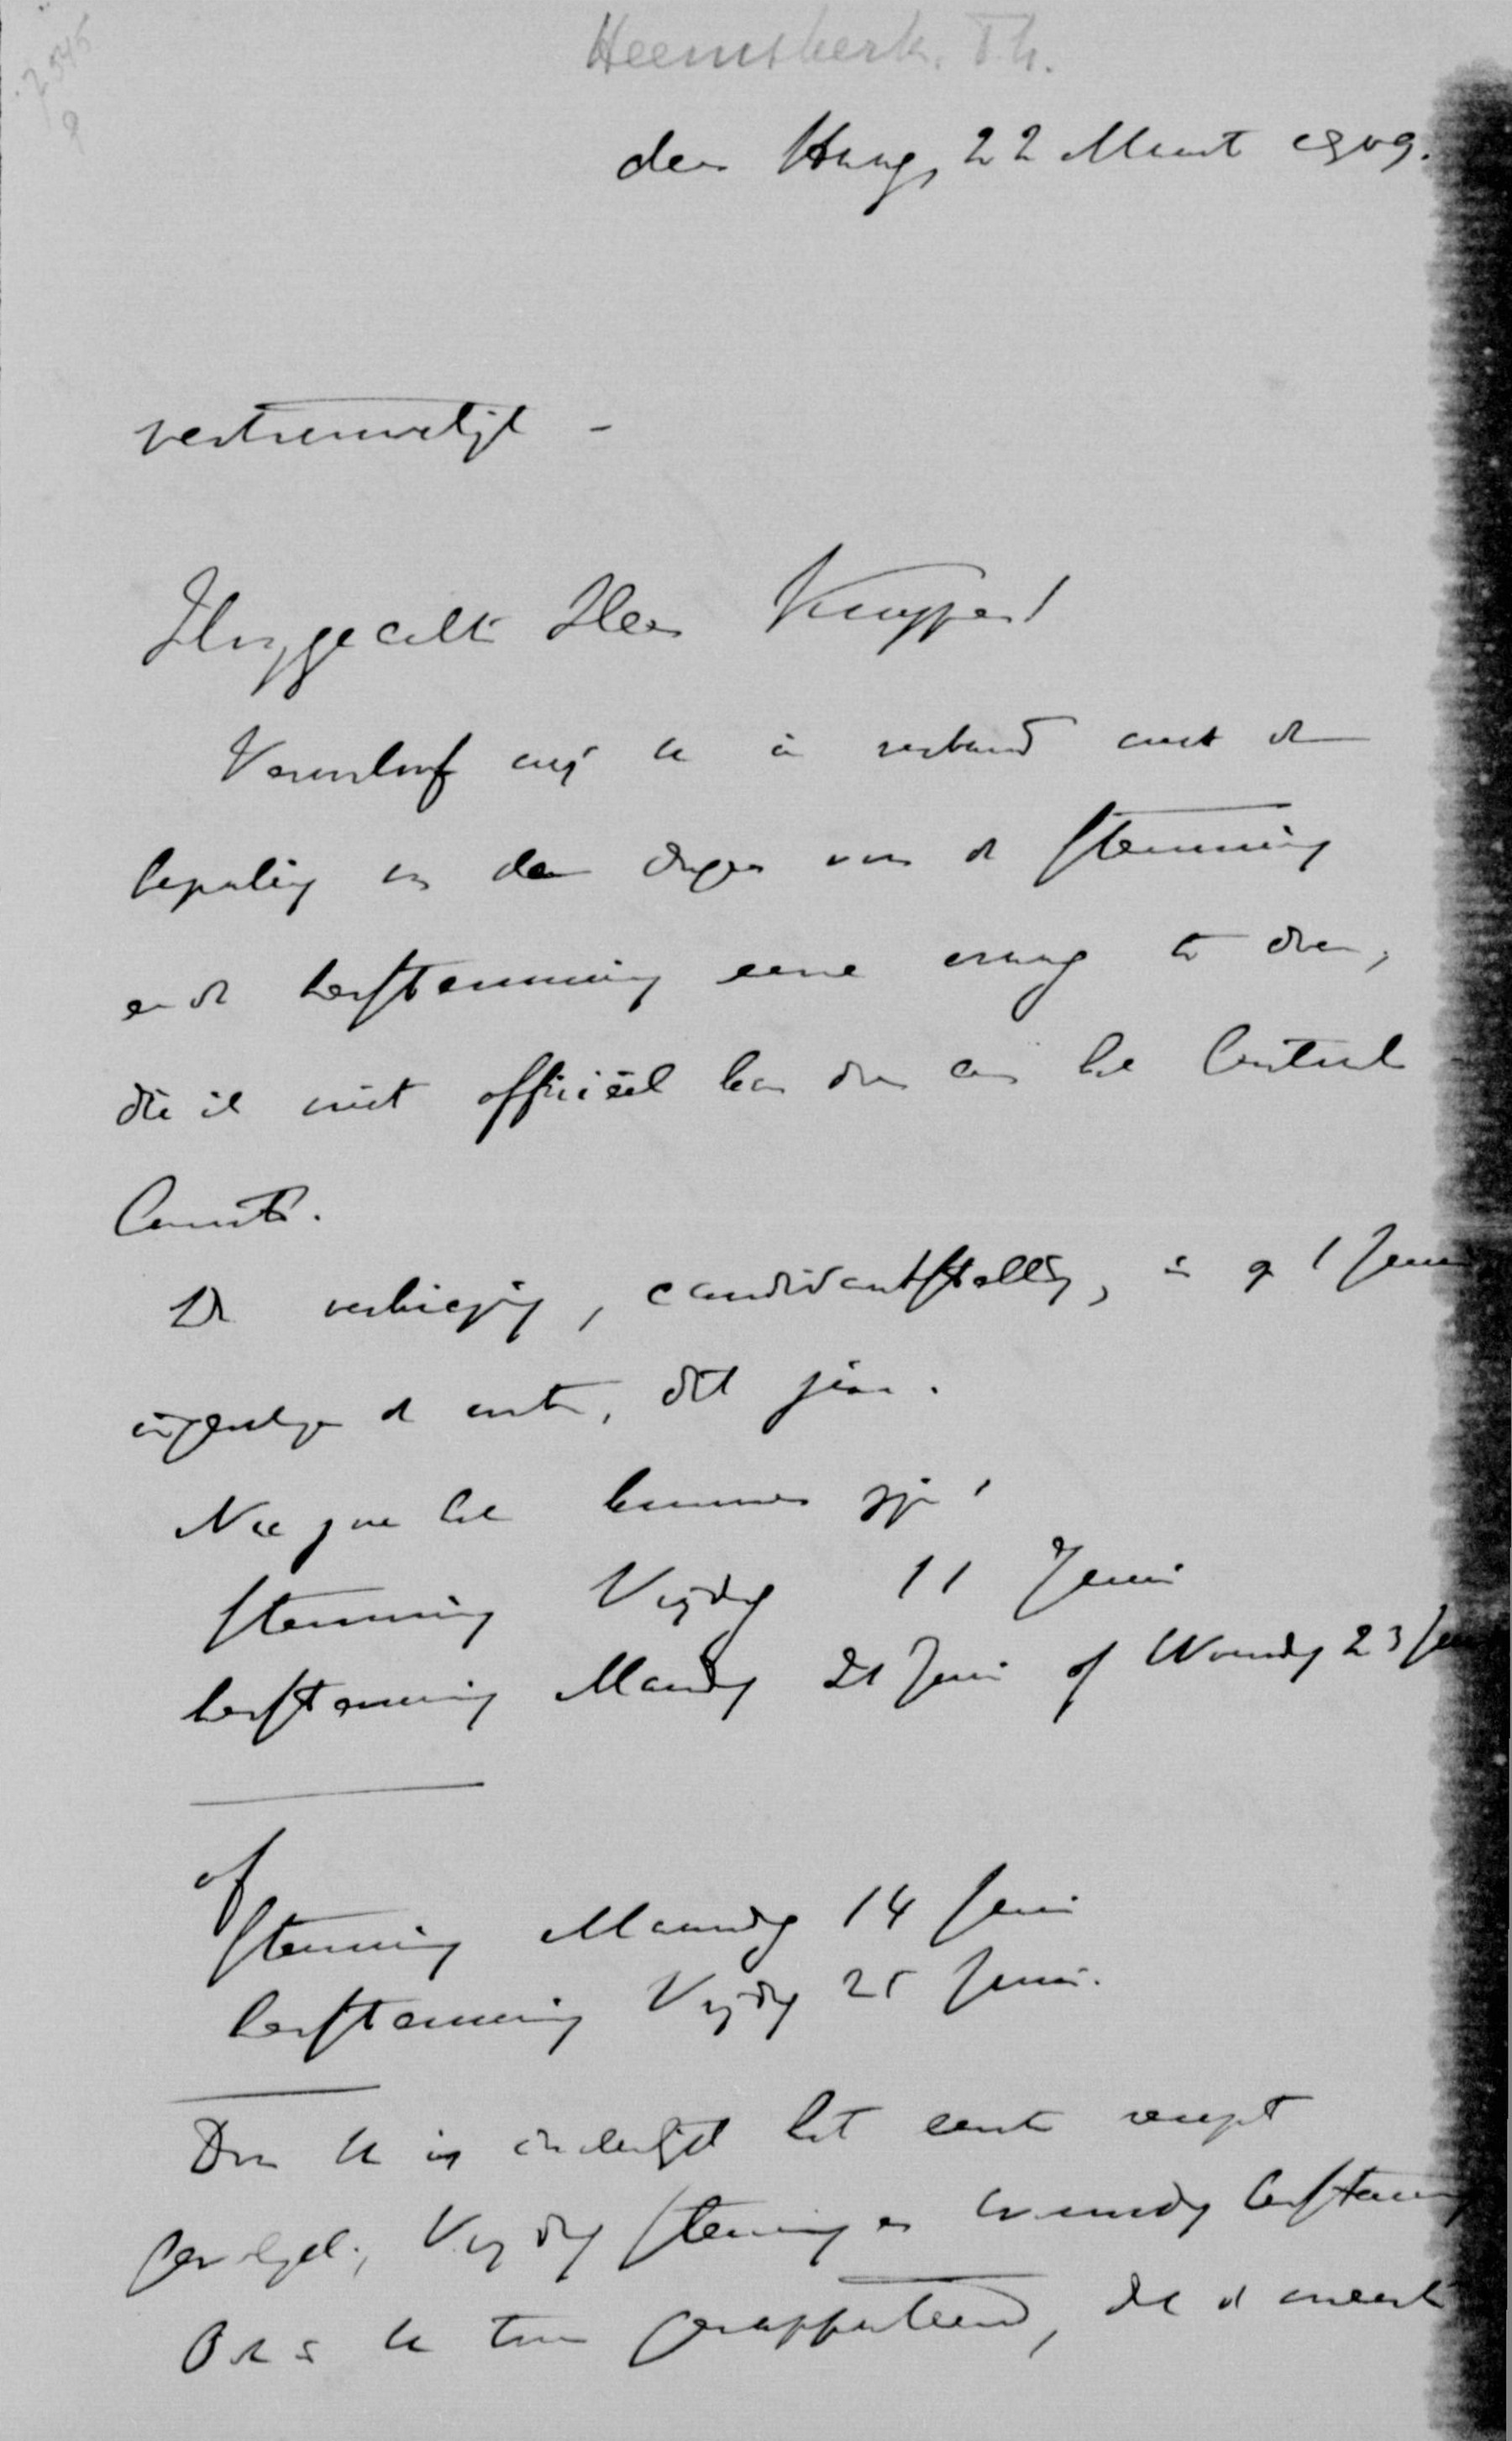 7545
9
Heemskerk. Th.
den Haag, 22 Maart 1909.
vertrouwelijk -
Hooggeachte Heer Kuyper!
Veroorloof mij U in verband met de
bepaling van den dagen van de stemming
en de herstemming eene vraag te doen,
die ik niet officiëel kan doen aan het Centraal
Comité.
De verkiezing, candidaatstelling, is op 1 Juni
de eerste, dit jaar.
Nu zou het kunnen zijn:
stemming Vrijdag 11 Juni
herstemming Maandag 21 Juni of Woensdag 23 Juni
of
stemming Maandag 14 Juni
herstemming Vrijdag 25 Juni.
Door U is indertijd het eerste recept
gevolgd, Vrijdag stemming en woensdag herstemming
Ook is U toen gerapporteerd, dat de meeste